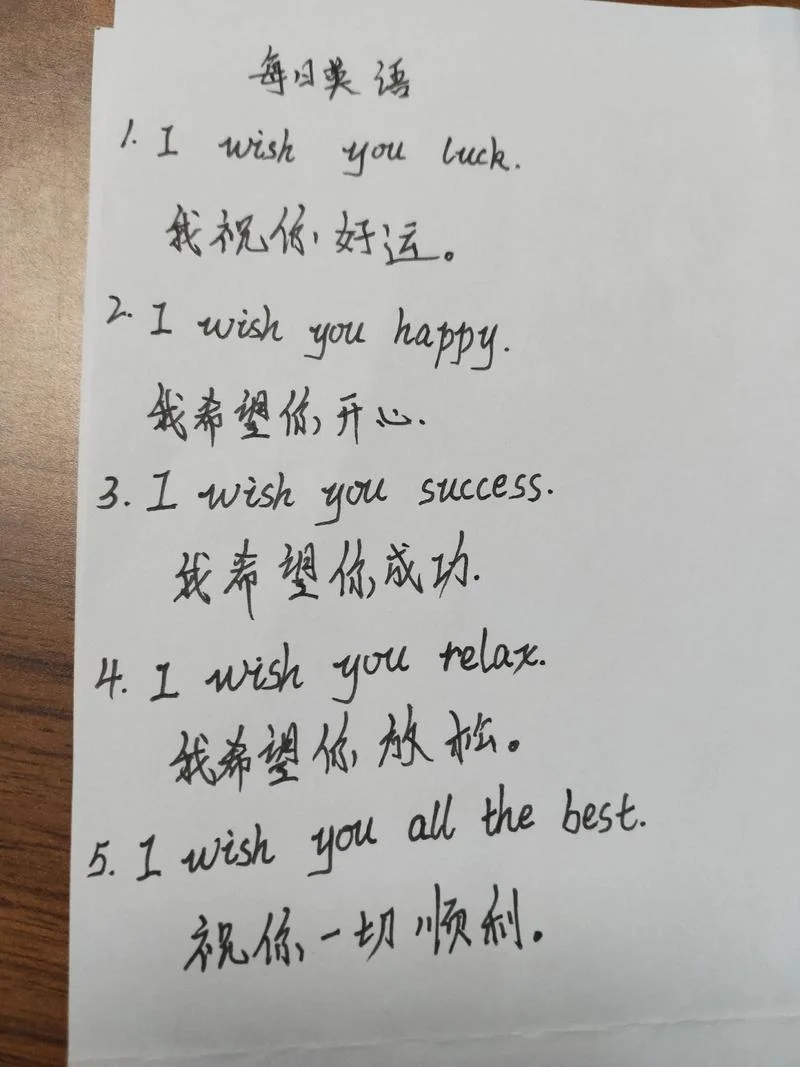 每日英语
1. I wish you luck.
我祝你好运。
2. I wish you happy.
我希望你开心.
3. I wish you success.
我希望你成功.
4. I wish you relax.
我希望你放松。
5. I wish you all the best.
祝你一切顺利。